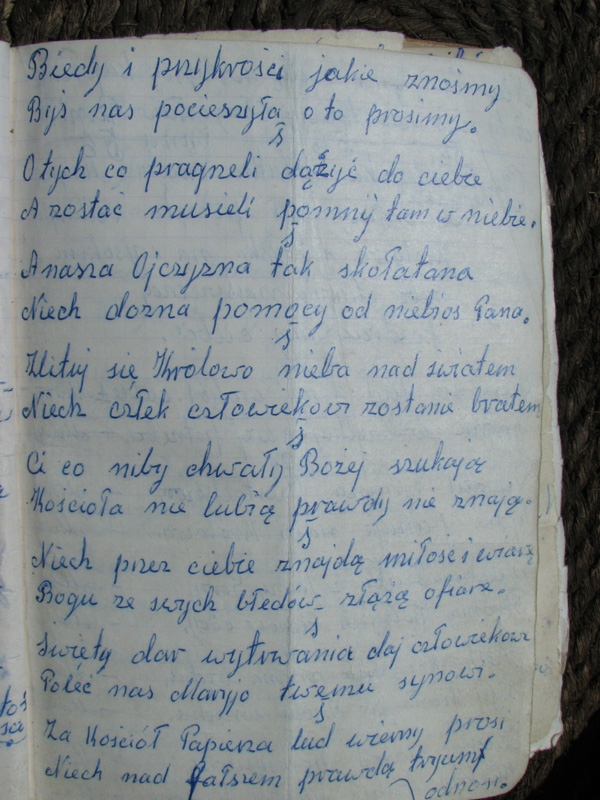 Biedy i przykrości jakie znośimy
Byś nas pocieszyła o to prosimy.
Ś
O tych co pragneli dążyć do ciebie
A zostać musieli pomnij tam w niebie.
Ś
A nasza Ojczyzna tak skołatana
Niech dozna pomocy od niebios Pana.
Ś
Zlituj się Królowo nieba nad światem
Niech człek człowiekowi zostanie bratem
Ś
Ci co niby chwały Bożej szukają
Kościoła nie lubią prawdy nie znają.
Ś
Niech przez ciebie znajdą miłość i wiarę
Bogu ze swych błedów złążą ofiare.
Ś
Święty dar wytrwania daj człowiekowi
Poleć nas Maryjo twemu synowi.
Ś
Za Kościół Papieza lud wierny prosi
Niech nad fałszem prawda tryumf
odnosi.